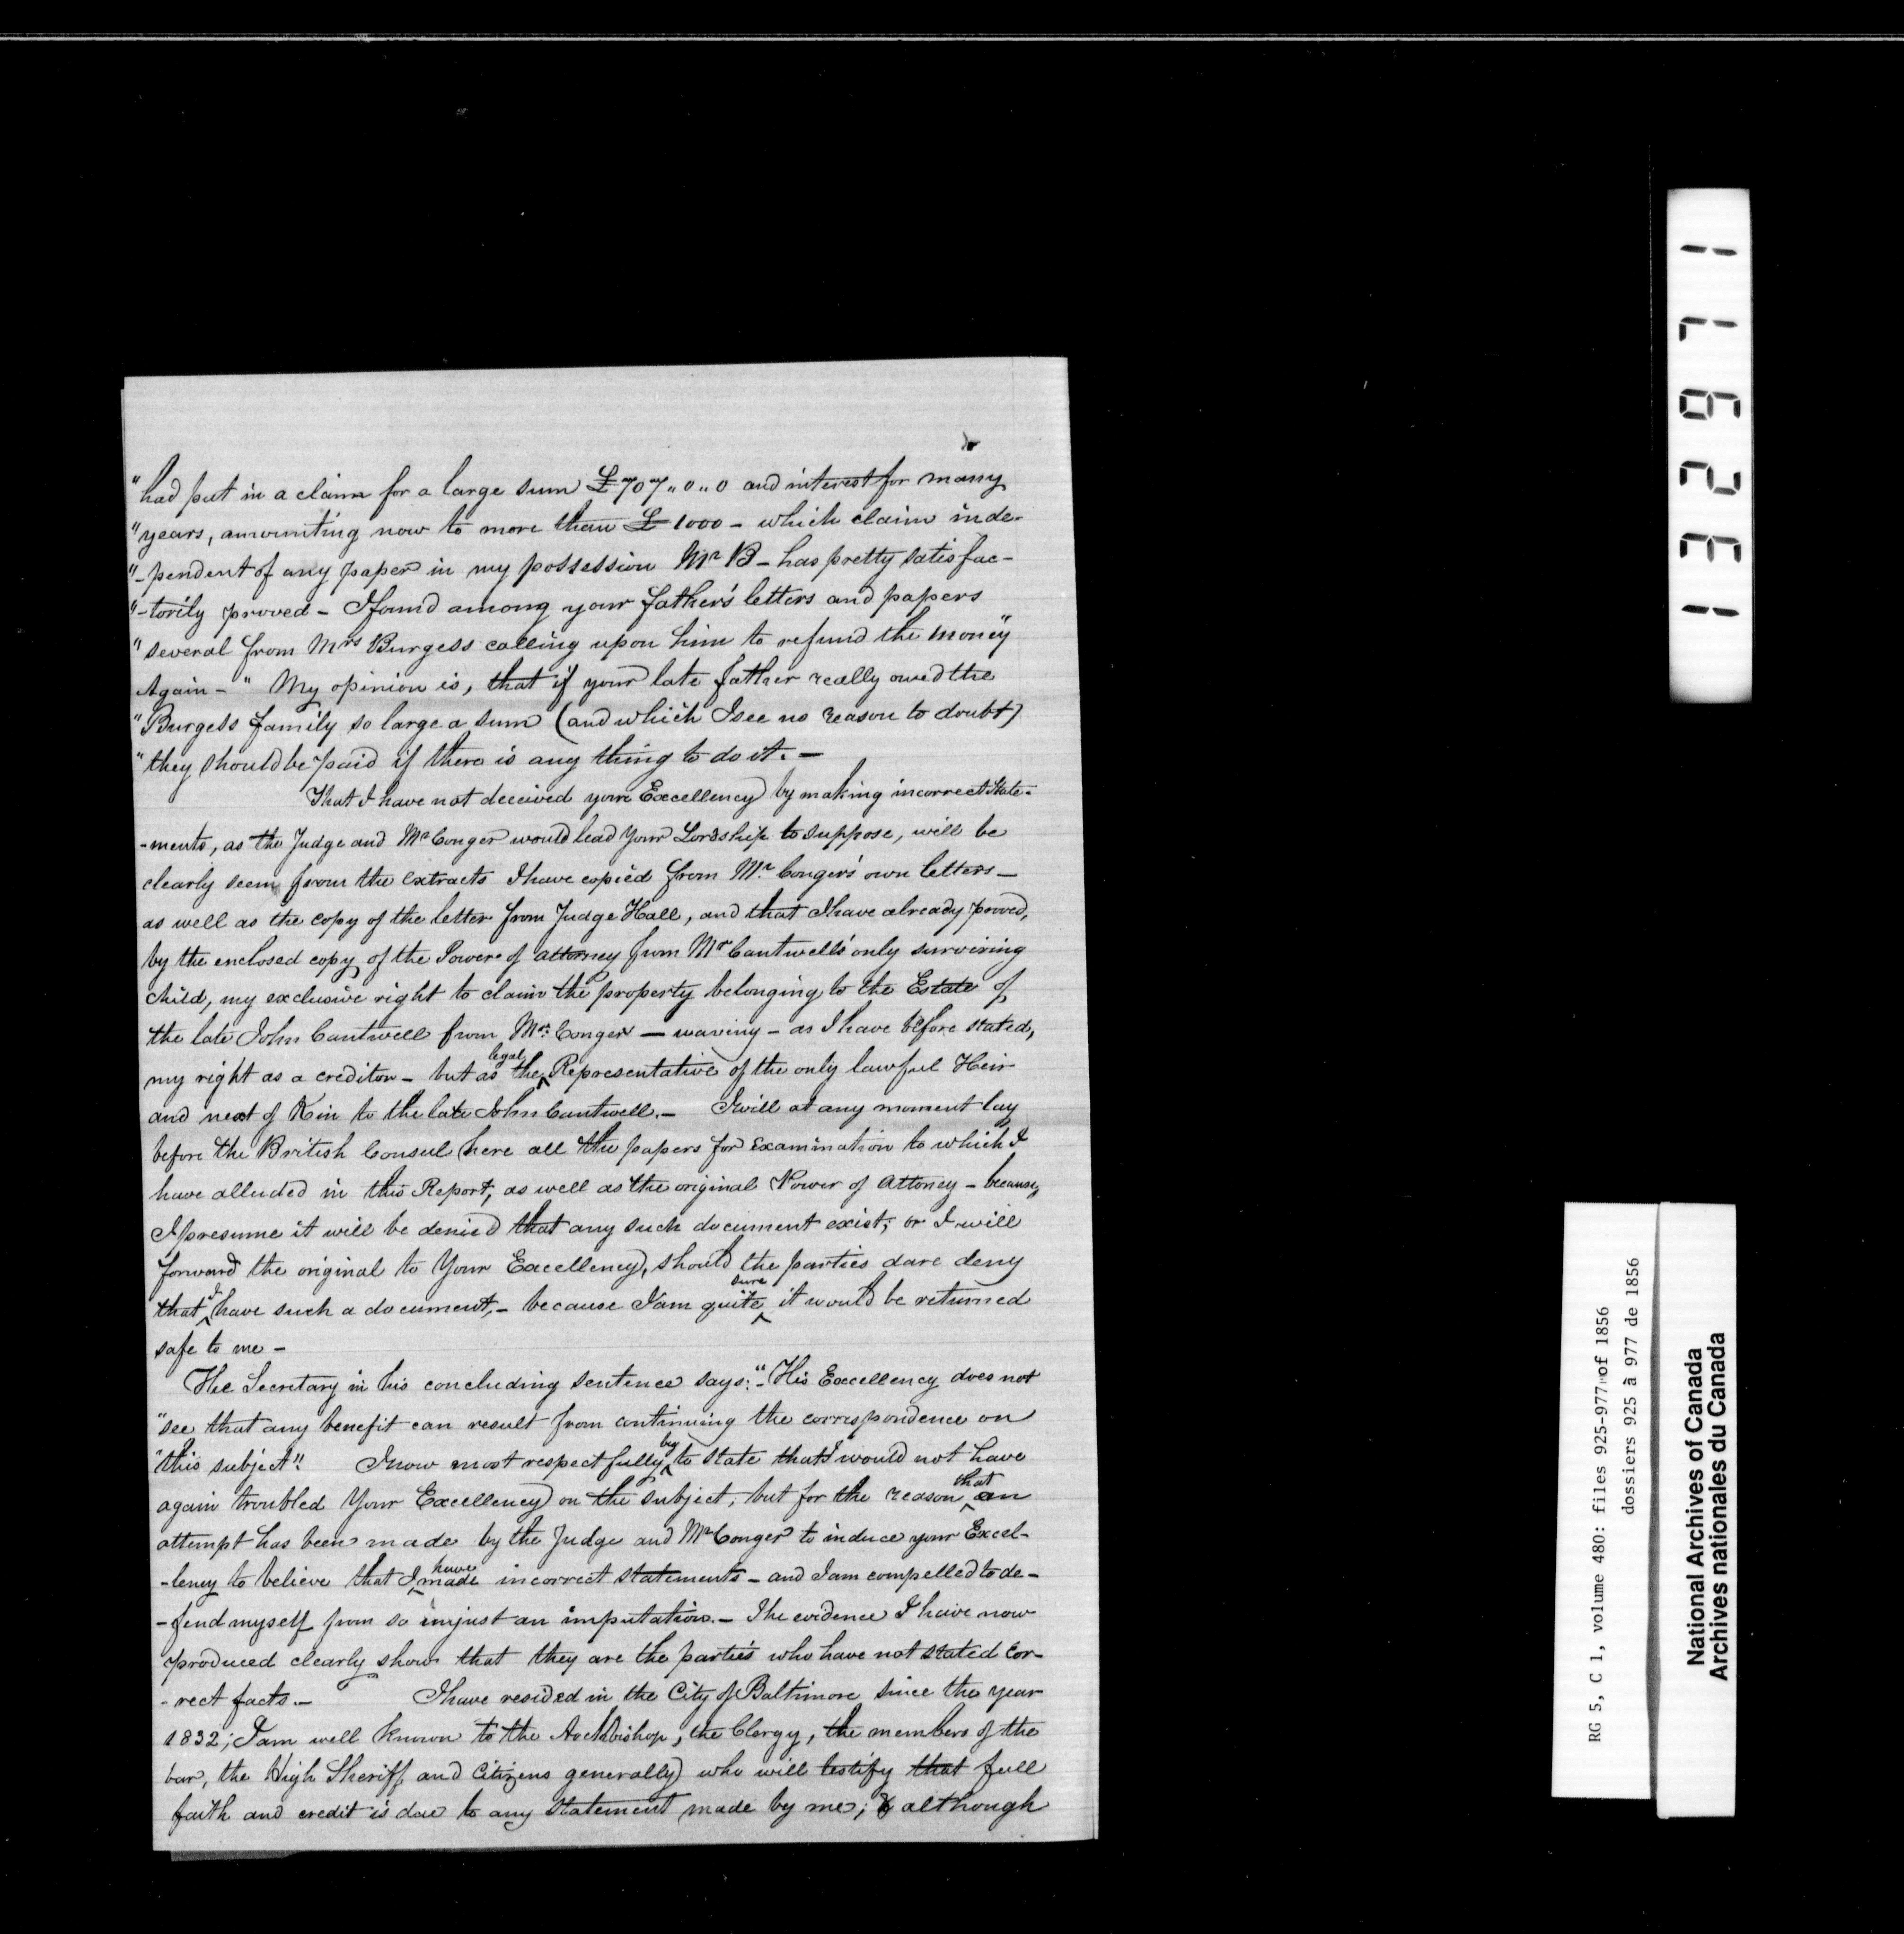 "had put in a claim for a large sum £707,,0,,0 and interest for many
"years, amounting now to more than £1000 - which claim inde-
"-pendent of any paper in my possession Mr B - has pretty satisfac-
"-torily proved - I found among your father's letters and papers
"several from Mrs Burgess calling upon him to refund the money"
Again - "My opinion is, that if your late father really owed the
"Burgess family so large a sum (and which I see no reason to doubt)
"they should be paid if there is any thing to do it. -
That I have not deceived your Excellency by making incorrect State-
-ments, as the Judge and Mr Conger would lead Your Lordship to suppose, will be
clearly seem from the extracts I have copied from Mr. Conger's own letters -
as well as the copy of the letter from Judge Hall, and that I have already proved,
by the enclosed copy of the Power of attorney from Mr Cantwell's only surviving
child, my exclusive right to claim the property belonging to the Estate of
the late John Cantwell from Mr. Conger - waving - as I have before stated,
my right as a creditor - but as the legal Representative of the only lawful Heir
and next of Kin to the late John Cantwell. - I will at any moment lay
before the British Consul here all the papers for examination to which I
have alluded in this Report, as well as the original Power of Attorney - because,
I presume it will be denied that any such document exist; or I will
forward the original to Your Excellency, should the parties dare deny
that I have such a document, - because I am quite sure it would be returned
safe to me -
The Secretary in his concluding sentence says: - "His Excellency does not
"see that any benefit can result from continuing the correspondence on
"this subject". I now most respectfully beg to state that I would not have
again troubled Your Excellency on the subject, but for the reason that an
attempt has been made by the Judge and Mr Conger to induce your Excel-
-lency to believe that I have made incorrect statements - and I am compelled to de-
-fend myself from so unjust an imputation. - The evidence I have now
produced clearly shows that they are the parties who have not stated cor-
-rect facts. - I have resided in the City of Baltimore since the year
1832; I am well known to the Archbishop, the Clergy, the members of the
bar, the High Sheriff, and Citizens generally) who will testify that full
faith and credit is due to any statement made by me; & although
132971
RG 5, C 1, volume 480: files 925-977 of 1856
dossiers 925 à 977 de 1856
National Archives of Canada
Archives nationales du Canada